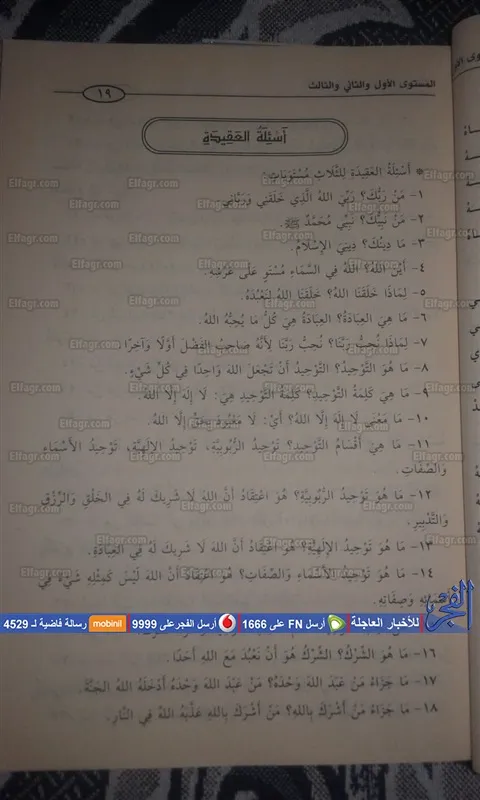 المستوى الأول والثاني والثالث
١٩
أَسْئِلَةُ العَقِيدَةِ
* أَسْئِلَةُ العَقِيدَةِ لِلثَّلاثِ مُسْتَوَيَاتٍ:
١- مَنْ رَبُّكَ؟ رَبِّيَ اللهُ الَّذِي خَلَقَنِي وَرَبَّانِي.
٢- مَنْ نَبِيُّكَ؟ نَبِيِّي مُحَمَّدٌ ﷺ.
٣- مَا دِينُكَ؟ دِينِيَ الإِسْلَامُ.
٤- أَيْنَ اللهُ؟ اللهُ فِي السَّمَاءِ مُسْتَوٍ عَلَى عَرْشِهِ.
٥- لِمَاذَا خَلَقَنَا اللهُ؟ خَلَقَنَا اللهُ لِنَعْبُدَهُ.
٦- مَا هِيَ العِبَادَةُ؟ العِبَادَةُ هِيَ كُلُّ مَا يُحِبُّهُ اللهُ.
٧- لِمَاذَا نُحِبُّ رَبَّنَا؟ نُحِبُّ رَبَّنَا لِأَنَّهُ صَاحِبُ الفَضْلِ أَوَّلًا وَآخِرًا.
٨- مَا هُوَ التَّوْحِيدُ؟ التَّوْحِيدُ أَنْ تَجْعَلَ اللهَ وَاحِدًا فِي كُلِّ شَيْءٍ.
٩- مَا هِيَ كَلِمَةُ التَّوْحِيدِ؟ كَلِمَةُ التَّوْحِيدِ هِيَ: لَا إِلَهَ إِلَّا اللهُ.
١٠- مَا مَعْنَى لَا إِلَهَ إِلَّا اللهُ؟ أَيْ: لَا مَعْبُودَ بِحَقٍّ إِلَّا اللهُ.
١١- مَا هِيَ أَقْسَامُ التَّوْحِيدِ؟ تَوْحِيدُ الرُّبُوبِيَّةِ، تَوْحِيدُ الإِلَهِيَّةِ، تَوْحِيدُ الأَسْمَاءِ
وَالصِّفَاتِ.
١٢- مَا هُوَ تَوْحِيدُ الرُّبُوبِيَّةِ؟ هُوَ اعْتِقَادُ أَنَّ اللهَ لَا شَرِيكَ لَهُ فِي الخَلْقِ وَالرِّزْقِ
وَالتَّدْبِيرِ.
١٣- مَا هُوَ تَوْحِيدُ الإِلَهِيَّةِ؟ هُوَ اعْتِقَادُ أَنَّ اللهَ لَا شَرِيكَ لَهُ فِي العِبَادَةِ.
١٤- مَا هُوَ تَوْحِيدُ الأَسْمَاءِ وَالصِّفَاتِ؟ هُوَ اعْتِقَادُ أَنَّ اللهَ لَيْسَ كَمِثْلِهِ شَيْءٌ فِي
وَصِفَاتِهِ.
الفجر للأخبار العاجلة أرسل FN على 1666 أرسل الفجر على 9999 mobinil رسالة فاضية لـ 4529
١٦- مَا هُوَ الشِّرْكُ؟ الشِّرْكُ هُوَ أَنْ تَعْبُدَ مَعَ اللهِ أَحَدًا.
١٧- مَا جَزَاءُ مَنْ عَبَدَ اللهَ وَحْدَهُ؟ مَنْ عَبَدَ اللهَ وَحْدَهُ أَدْخَلَهُ اللهُ الجَنَّةَ.
١٨- مَا جَزَاءُ مَنْ أَشْرَكَ بِاللهِ؟ مَنْ أَشْرَكَ بِاللهِ عَذَّبَهُ اللهُ فِي النَّارِ.
Elfagr.com